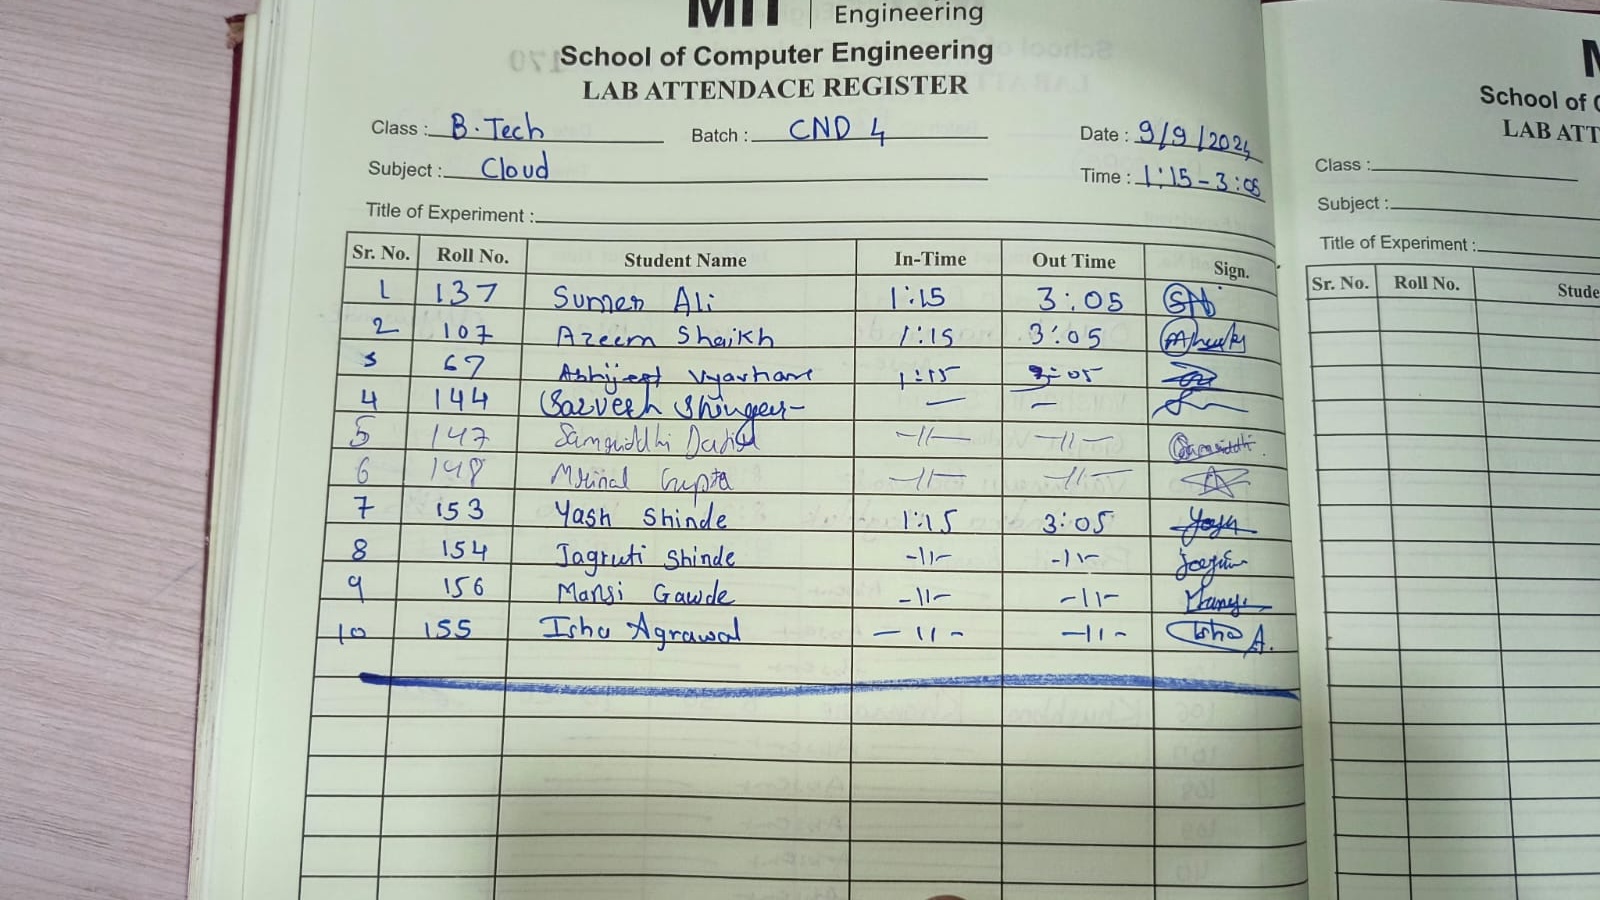 MIT | Engineering
School of Computer Engineering
LAB ATTENDACE REGISTER
Class : B.Tech Batch : CND 4 Date : 9/9/2024
Subject : Cloud Time : 1:15-3:05
Title of Experiment :
Sr. No. Roll No. Student Name In-Time Out Time Sign.
1 137 Sumen Ali 1:15 3:05 SA
2 107 Azeem Shaikh 1:15 3:05
3 67 Abhijeet 1:15 3:05
4 144 Sarvesh — —
5 147 Samriddhi -11- -11- Samriddhi
6 148 Mrinal Gupta -11- -11-
7 153 Yash Shinde 1:15 3:05 Yash
8 154 Jagruti Shinde -11- -11-
9 156 Mansi Gawde -11- -11-
10 155 Isha Agrawal -11- -11- Isha A.
School of
LAB ATT
Class :
Subject :
Title of Experiment :
Sr. No. Roll No. Stude